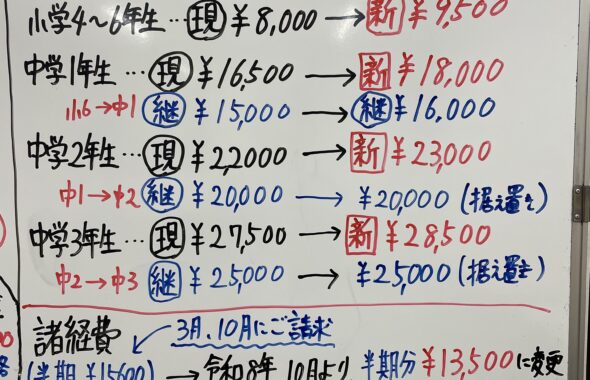 小学4～6年生…現 ¥8,000 → 新 ¥9,500
中学1年生…現 ¥16,500 → 新 ¥18,000
小6→中1 継 ¥15,000 → 継 ¥16,000
中学2年生…現 ¥22,000 → 新 ¥23,000
中1→中2 継 ¥20,000 → ¥20,000 (据え置き)
中学3年生…現 ¥27,500 → 新 ¥28,500
中2→中3 継 ¥25,000 → ¥25,000 (据え置き)
諸経費 3月、10月にご請求
(半期 ¥15600) → 令和8年 10月より 半期分 ¥13,500に変更